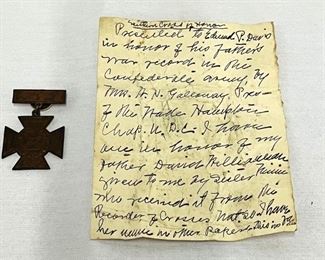 Cross of Honor
Presented to Edward P. Davis
in honor of his father's
war record in the
Confederate army, by
Mrs. H. N. Galloway, Pres
of the Wade Hampton
Chap. U. D. C. I have
one in honor of my
father David
given to me by Sister
who received it from the
Recorder of Crosses not so I have
her name in other papers this in